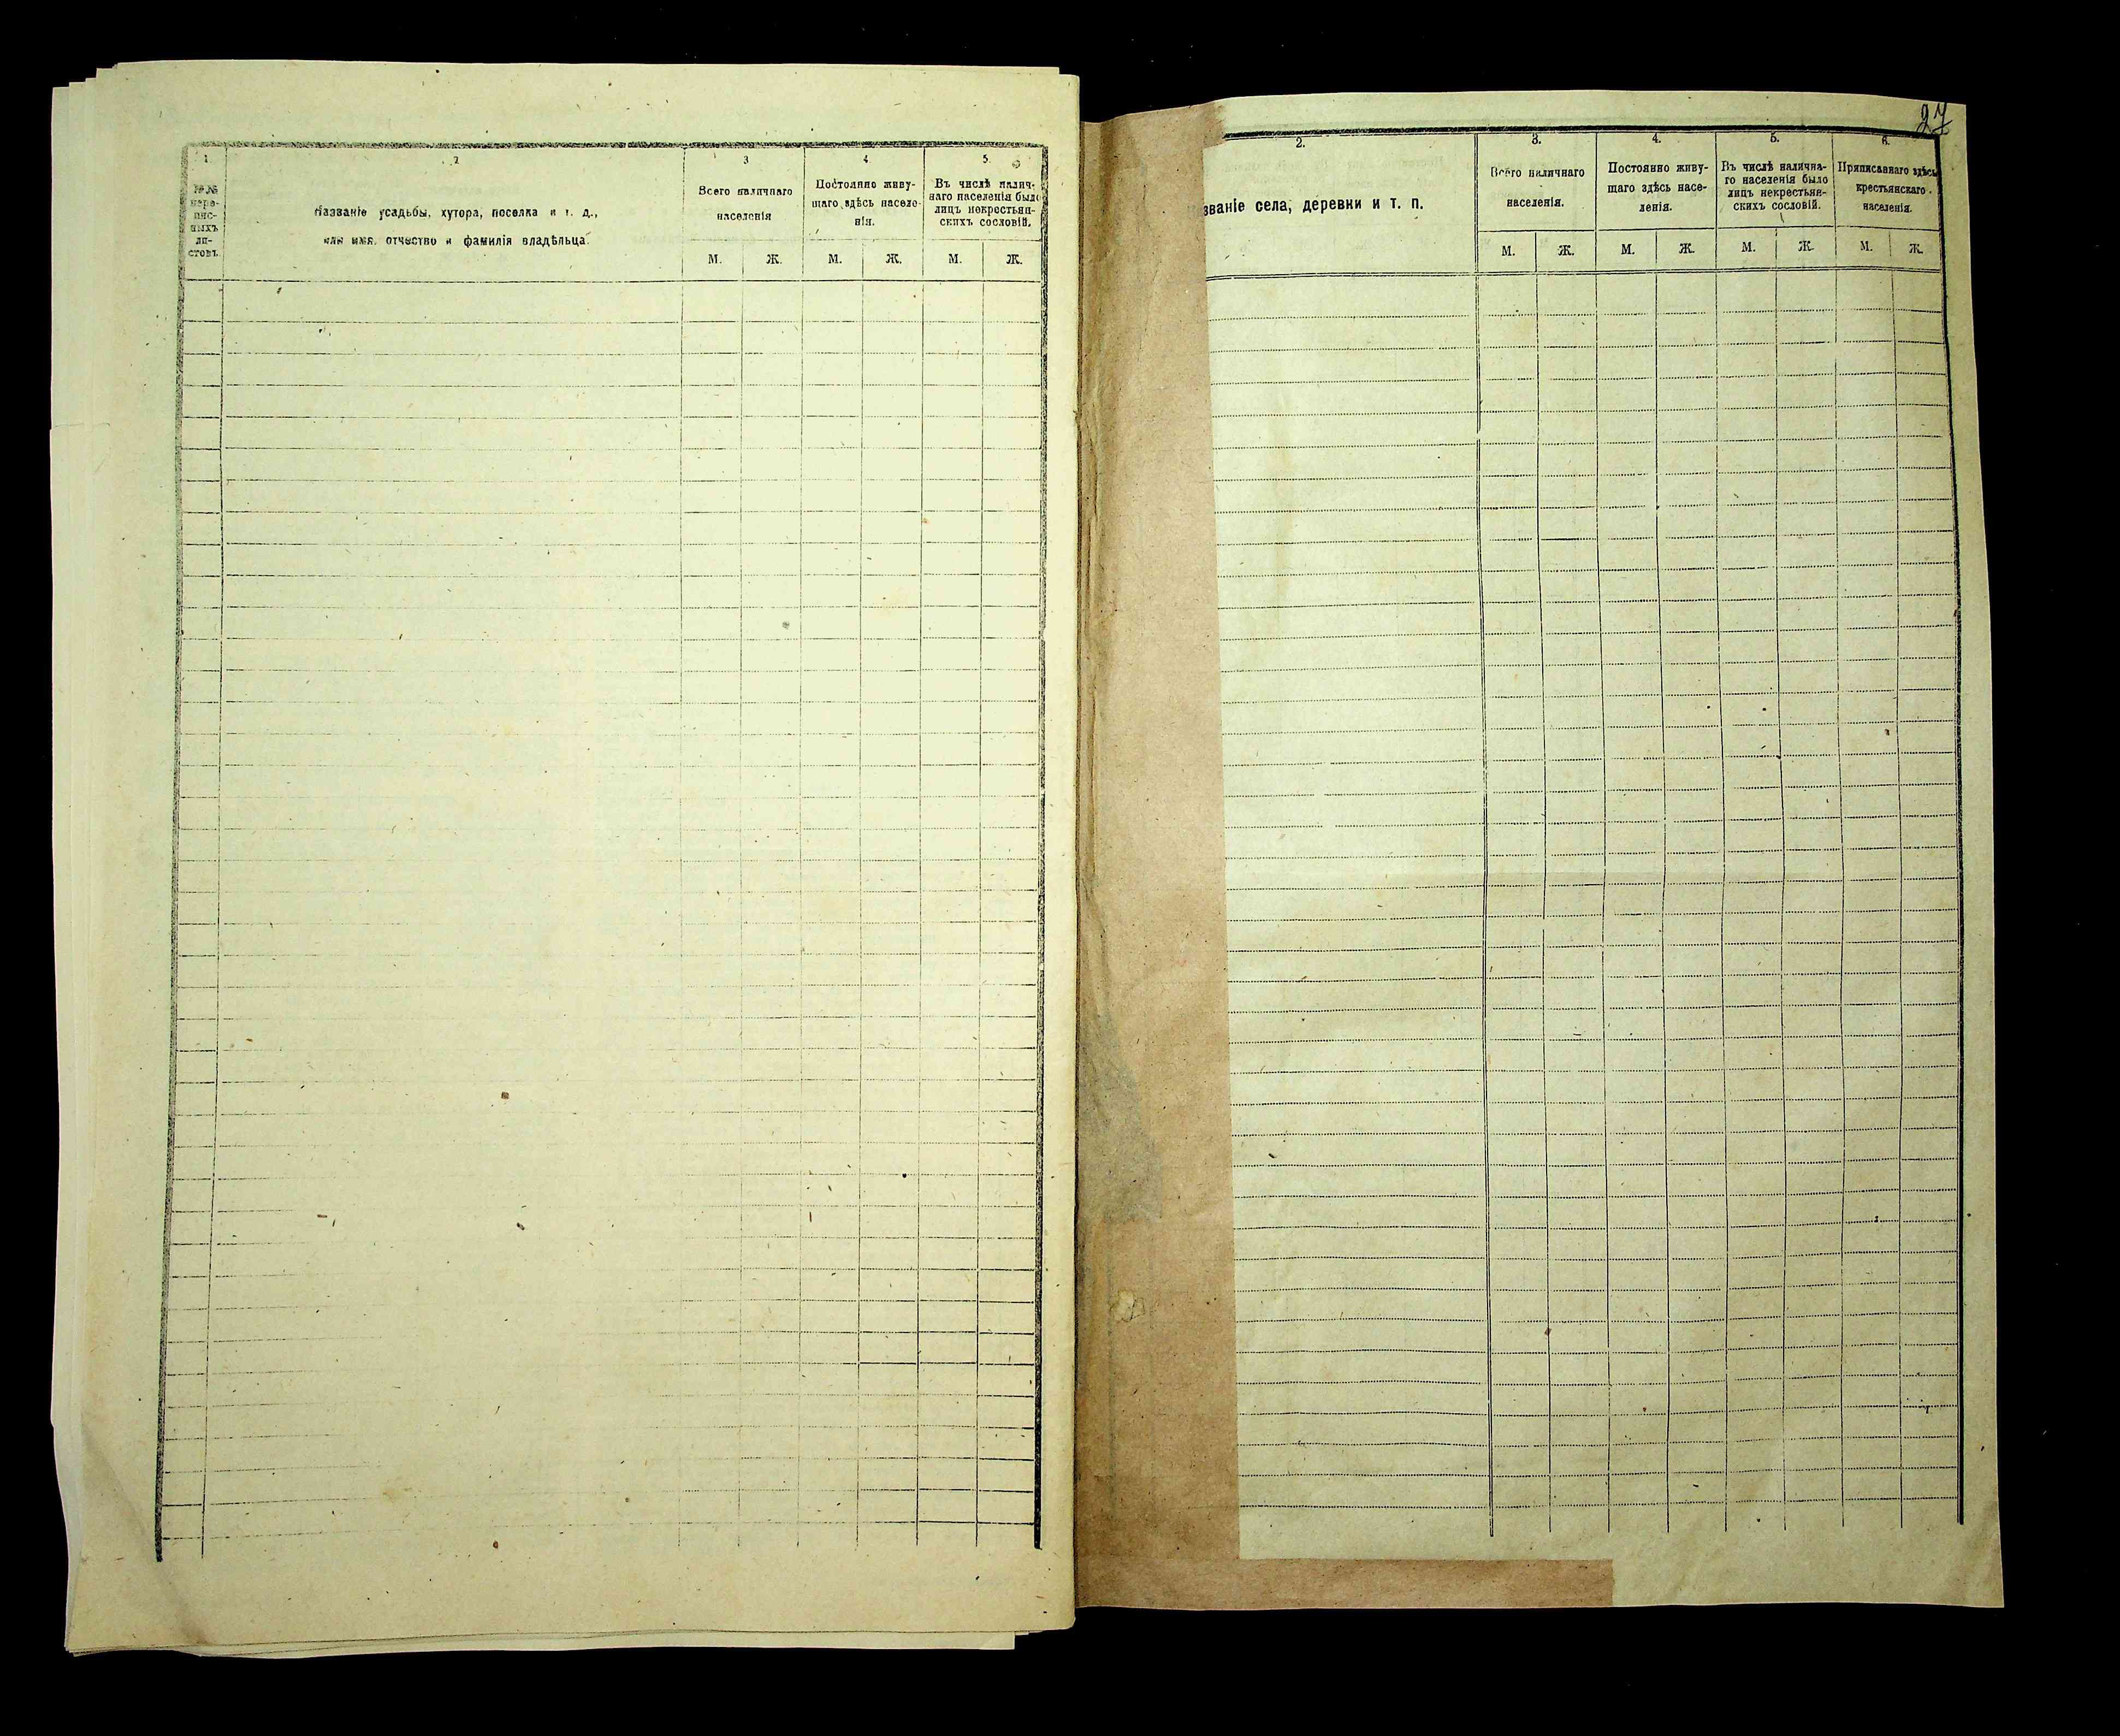 1
2
3
4.
5.
№№ пере-
пис-
ныхъ
ли-
стовъ.
Названіе усадьбы, хутора, поселка и т. д.,
или имя, отчество и фамилія владѣльца.
Всего наличнаго
населенія
Постоянно живу-
щаго здѣсь населе-
нія.
Въ числѣ налич-
наго населенія было
лицъ некрестьян-
скихъ сословій.
М.
Ж.
М.
Ж.
М.
Ж.
27
2.
3.
4.
5.
6.
званіе села, деревни и т. п.
Всего наличнаго
населенія.
Постоянно живу-
щаго здѣсь насе-
ленія.
Въ числѣ налична-
го населенія было
лицъ некрестьян-
скихъ сословій.
Приписаннаго здѣсь
крестьянскаго
населенія.
М.
Ж.
М.
Ж.
М.
Ж.
М.
Ж.